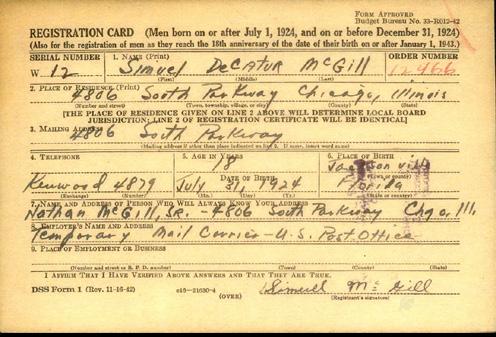 FORM APPROVED
Budget Bureau No. 33-R012-42
REGISTRATION CARD (Men born on or after July 1, 1924, and on or before December 31, 1924)
(Also for the registration of men as they reach the 18th anniversary of the date of their birth on or after January 1, 1943.)
SERIAL NUMBER 1. NAME (Print) ORDER NUMBER
W. 12 Simuel DeCatur McGill 12966
(First) (Middle) (Last)
2. PLACE OF RESIDENCE (Print)
4806 South Parkway Chicago, Illinois
(Number and street) (Town, township, village, or city) (County) (State)
[THE PLACE OF RESIDENCE GIVEN ON LINE 2 ABOVE WILL DETERMINE LOCAL BOARD
JURISDICTION; LINE 2 OF REGISTRATION CERTIFICATE WILL BE IDENTICAL]
3. MAILING ADDRESS
4806 South Parkway
[Mailing address if other than place indicated on line 2. If same, insert word same]
4. TELEPHONE 5. AGE IN YEARS 6. PLACE OF BIRTH
18 Jacksonville
DATE OF BIRTH (Town or county)
Kenwood 4879 July 31 1924 Florida
7. NAME AND ADDRESS OF PERSON WHO WILL ALWAYS KNOW YOUR ADDRESS
Nathan McGill, Sr. - 4806 South Parkway Chgo, Ill.
8. EMPLOYER'S NAME AND ADDRESS
Temporary Mail Carrier - U.S. Post Office
9. PLACE OF EMPLOYMENT OR BUSINESS
(Number and street or R. F. D. number) (Town) (County) (State)
I AFFIRM THAT I HAVE VERIFIED ABOVE ANSWERS AND THAT THEY ARE TRUE.
DSS Form 1 (Rev. 11-16-42) (OVER) Simuel McGill
(Registrant's signature)